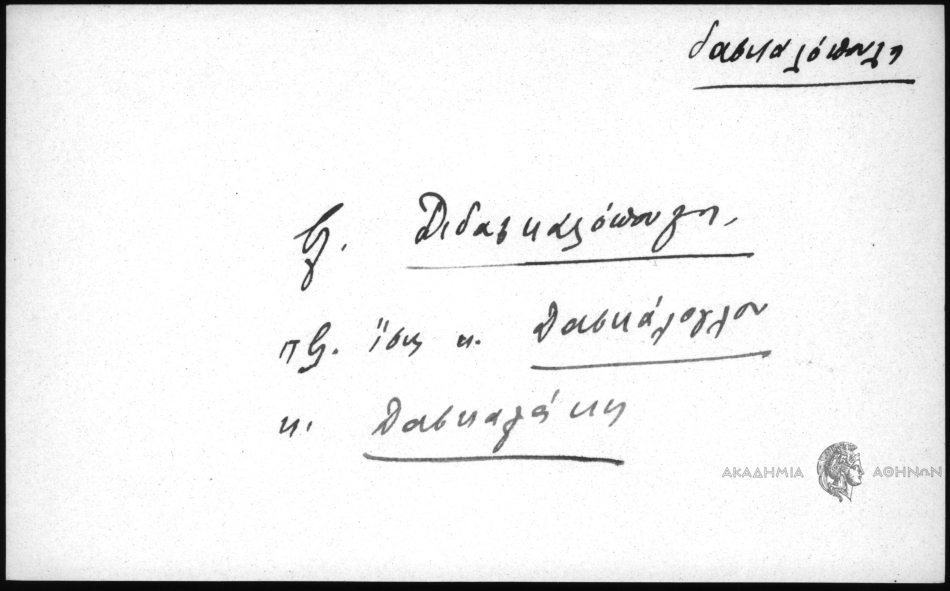 δασκαλόπουλο
βλ. Διδασκαλόπουλο,
πβ. ἴσως κ. Δασκάλογλου
κ. Δασκαλάκης
ΑΚΑΔΗΜΙΑ ΑΘΗΝΩΝ